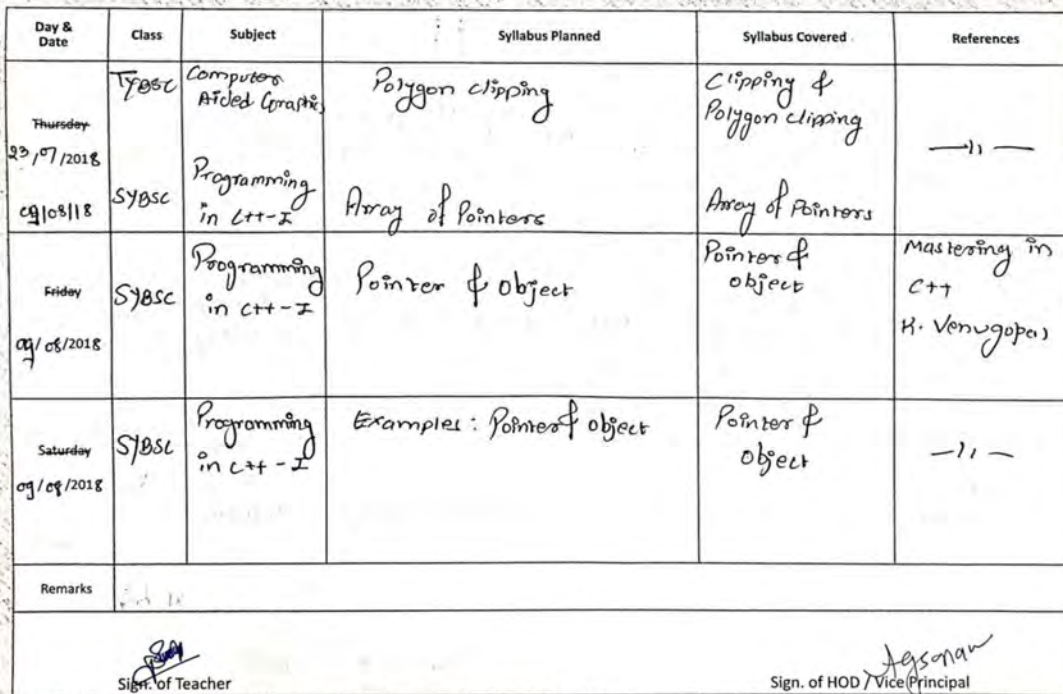 Day & Date Class Subject Syllabus Planned Syllabus Covered References
Thursday
23/07/2018
TYBSC Computer Aided Graphics Polygon clipping Clipping & Polygon clipping —〃—
09/08/18
SYBSC Programming in C++-I Array of Pointers Array of Pointers
Friday
09/08/2018
SYBSC Programming in C++-I Pointer & Object Pointer & object Mastering in C++ K. Venugopal
Saturday
09/08/2018
SYBSC Programming in C++-I Examples: Pointer & object Pointer & object —〃—
Remarks
Sign. of Teacher Sign. of HOD / Vice Principal